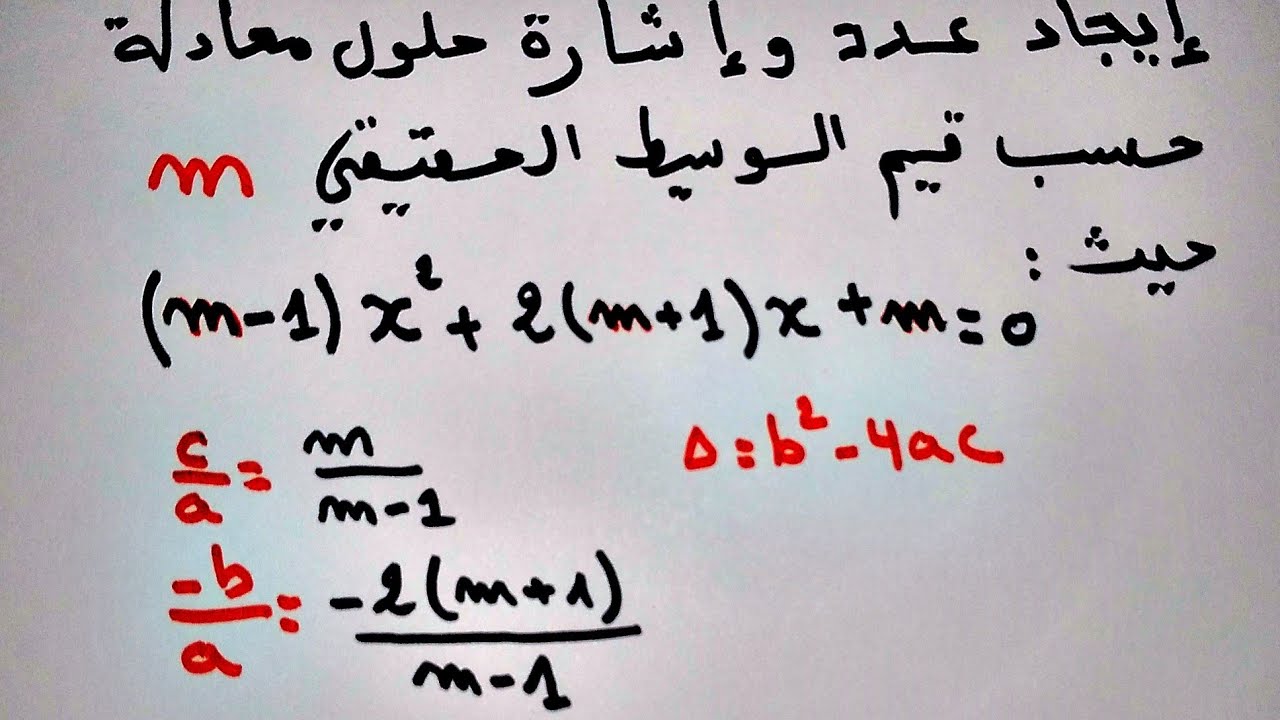 إيجاد عدد وإشارة حلول معادلة
حسب قيم الوسيط الحقيقي m
حيث :
(m-1)x²+2(m+1)x+m=0
Δ=b²-4ac
c/a = m/m-1
-b/a = -2(m+1)/m-1